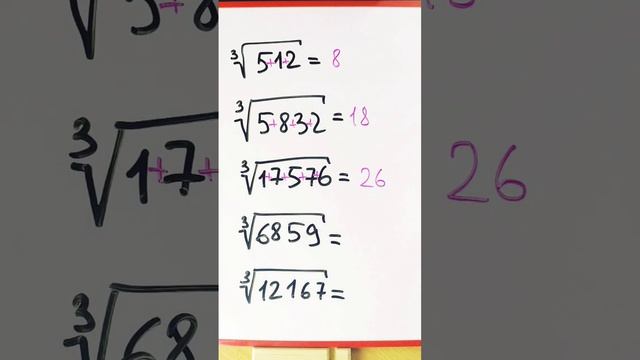 ∛512 = 8
∛5832 = 18
∛17576 = 26
∛6859 =
∛12167 =